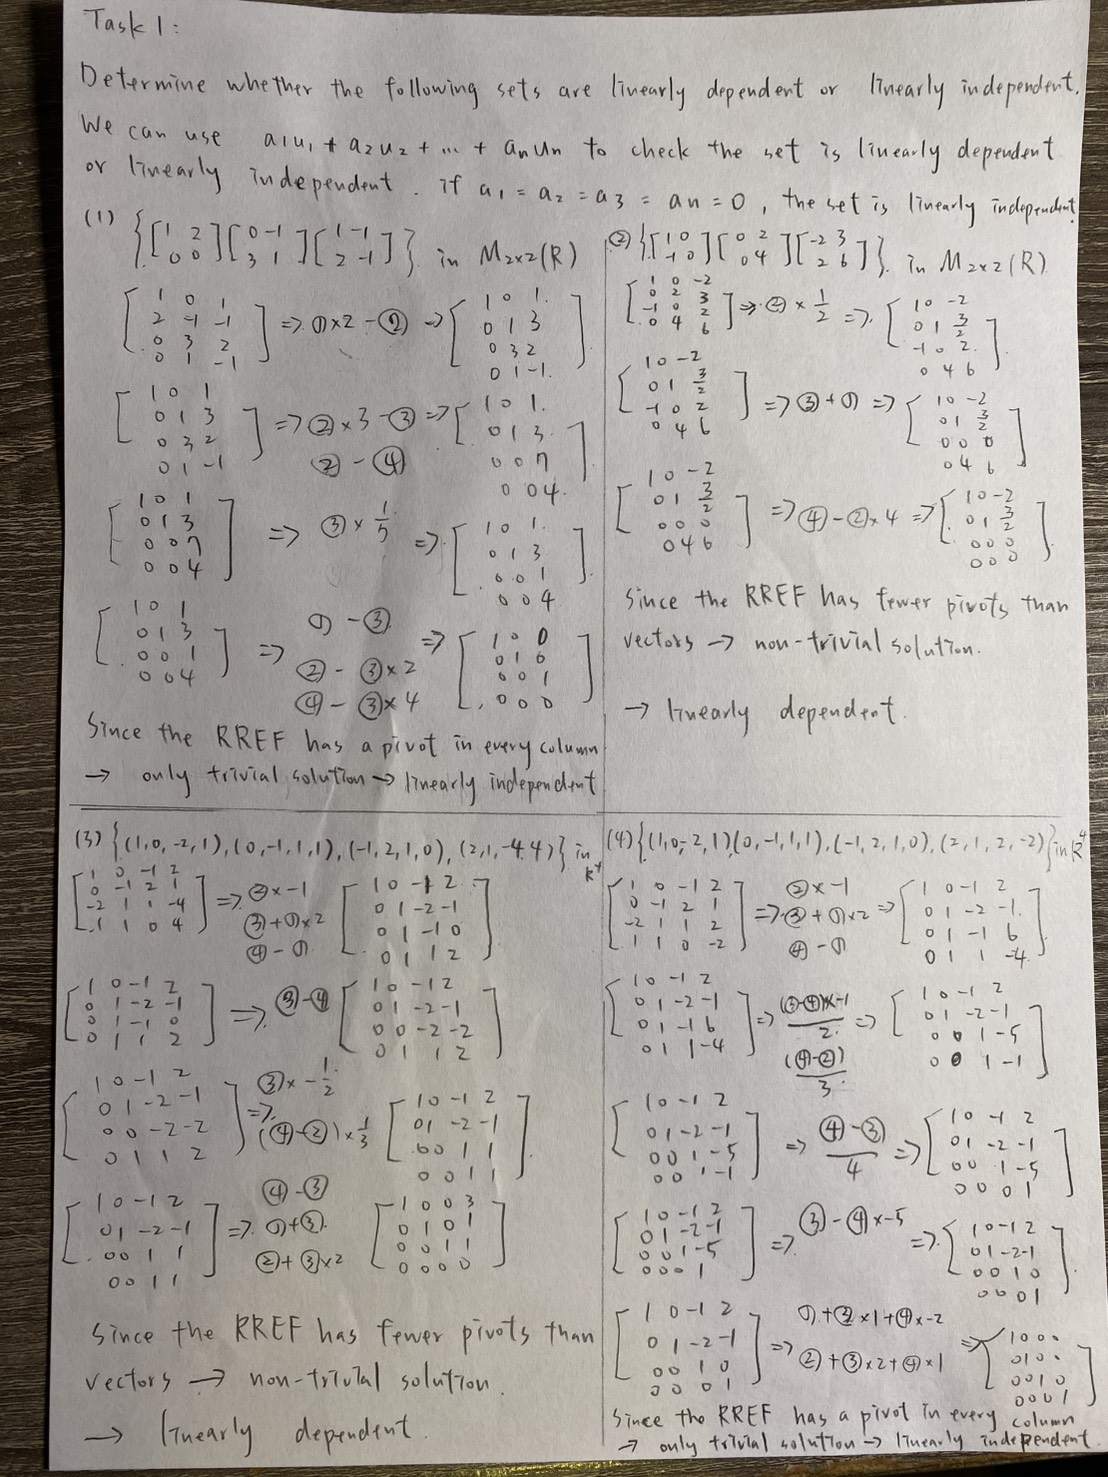 Task 1:
Determine whether the following sets are linearly dependent or linearly independent.
We can use a1u1 + a2u2 + ... + anun to check the set is linearly dependent
or linearly independent. if a1 = a2 = a3 = an = 0, the set is linearly independent
(1) {[1 2
0 0] [0 -1
3 1] [1 -1
2 -1]} in M2x2(R)
[1 0 1
2 -1 -1
0 3 2
0 1 -1] => ①x2 - ② => [1 0 1
0 1 3
0 3 2
0 1 -1]
[1 0 1
0 1 3
0 3 2
0 1 -1] => ②x3 - ③
② - ④ => [1 0 1
0 1 3
0 0 7
0 0 4]
[1 0 1
0 1 3
0 0 7
0 0 4] => ③ x 1/5 => [1 0 1
0 1 3
0 0 1
0 0 4]
[1 0 1
0 1 3
0 0 1
0 0 4] => ① - ③
② - ③x2
④ - ③x4 => [1 0 0
0 1 0
0 0 1
0 0 0]
Since the RREF has a pivot in every column
→ only trivial solution → linearly independent
② {[1 0
-1 0] [0 2
0 4] [-2 3
2 6]} in M2x2(R)
[1 0 -2
0 2 3
-1 0 2
0 4 6] => ② x 1/2 => [1 0 -2
0 1 3/2
-1 0 2
0 4 6]
[1 0 -2
0 1 3/2
-1 0 2
0 4 6] => ③+① => [1 0 -2
0 1 3/2
0 0 0
0 4 6]
[1 0 -2
0 1 3/2
0 0 0
0 4 6] => ④-②x4 => [1 0 -2
0 1 3/2
0 0 0
0 0 0]
Since the RREF has fewer pivots than
vectors → non-trivial solution.
→ linearly dependent.
(3) {(1,0,-2,1),(0,-1,1,1),(-1,2,1,0),(2,1,-4,4)} in R^4
[1 0 -1 2
0 -1 2 1
-2 1 1 -4
1 1 0 4] => ②x-1
③+①x2
④-① [1 0 -1 2
0 1 -2 -1
0 1 -1 0
0 1 1 2]
[1 0 -1 2
0 1 -2 -1
0 1 -1 0
0 1 1 2] => ③-④ [1 0 -1 2
0 1 -2 -1
0 0 -2 -2
0 1 1 2]
[1 0 -1 2
0 1 -2 -1
0 0 -2 -2
0 1 1 2] => ③x-1/2
(④-②)x1/3 [1 0 -1 2
0 1 -2 -1
0 0 1 1
0 0 1 1]
[1 0 -1 2
0 1 -2 -1
0 0 1 1
0 0 1 1] => ④-③
①+③
②+③x2 [1 0 0 3
0 1 0 1
0 0 1 1
0 0 0 0]
Since the RREF has fewer pivots than
vectors → non-trivial solution.
→ linearly dependent.
(4) {(1,0,-2,1)(0,-1,1,1),(-1,2,1,0),(2,1,2,-2)} in R^4
[1 0 -1 2
0 -1 2 1
-2 1 1 2
1 1 0 -2] => ②x-1
③+①x2
④-① => [1 0 -1 2
0 1 -2 -1
0 1 -1 6
0 1 1 -4]
[1 0 -1 2
0 1 -2 -1
0 1 -1 6
0 1 1 -4] => (③-④)x-1/2
(④-②)/3 => [1 0 -1 2
0 1 -2 -1
0 0 1 -5
0 0 1 -1]
[1 0 -1 2
0 1 -2 -1
0 0 1 -5
0 0 1 -1] => (④-③)/4 => [1 0 -1 2
0 1 -2 -1
0 0 1 -5
0 0 0 1]
[1 0 -1 2
0 1 -2 -1
0 0 1 -5
0 0 0 1] => ③-④x-5 => [1 0 -1 2
0 1 -2 -1
0 0 1 0
0 0 0 1]
[1 0 -1 2
0 1 -2 -1
0 0 1 0
0 0 0 1] => ①+③x1+④x-2
②+③x2+④x1 => [1 0 0 0
0 1 0 0
0 0 1 0
0 0 0 1]
Since the RREF has a pivot in every column
→ only trivial solution → linearly independent.